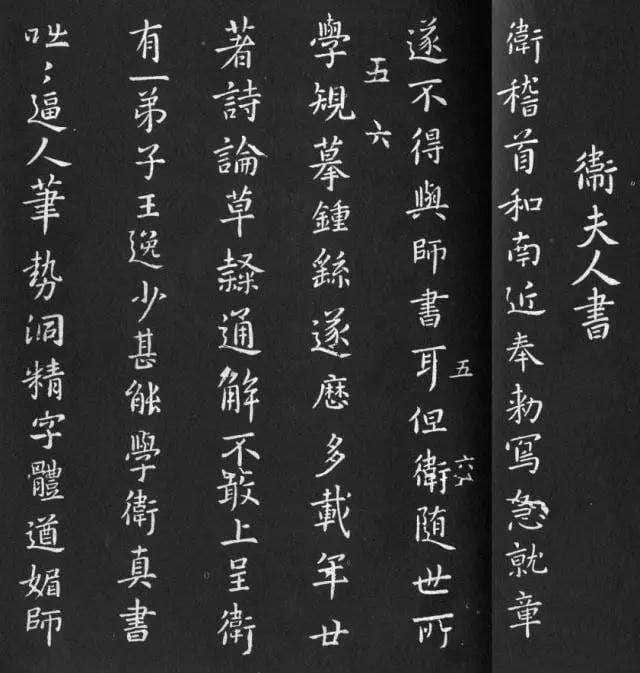 衛夫人書
衛稽首和南近奉勑寫急就章
遂不得與師書耳但衛随世所
五
六
學規摹鍾繇遂歷多載年廿
五 六
著詩論草隸通解不敢上呈衛
有一弟子王逸少甚能學衛真書
咄〻逼人筆勢洞精字體遒媚師